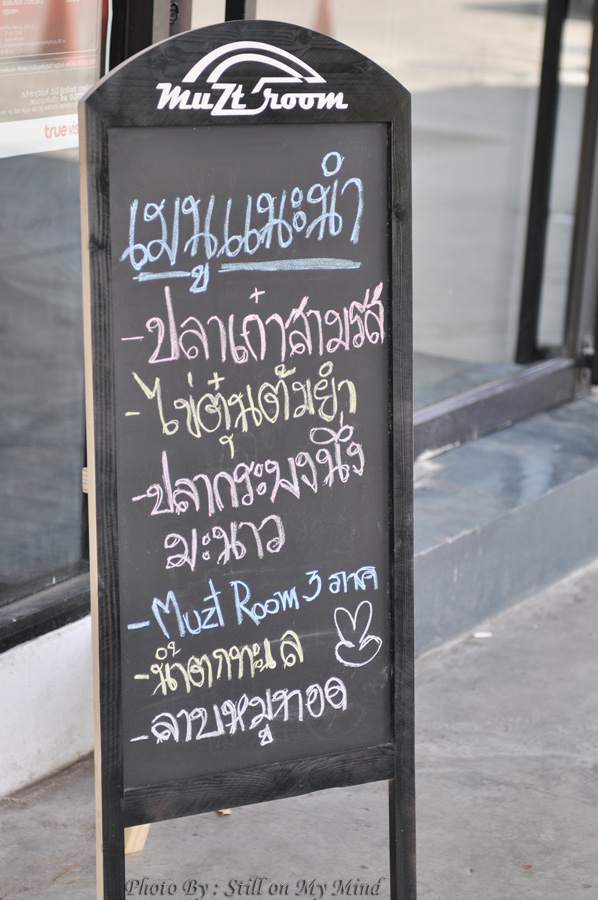 MuZt room
เมนูแนะนำ
-ปลาเก๋าสามรส
-ไข่ตุ๋นต้มยำ
-ปลากระพงนึ่ง
มะนาว
-Muzt Room 3 ภาค
-น้ำตกทะเล
-ลาบหมูทอด
true vis
Photo By : Still on My Mind